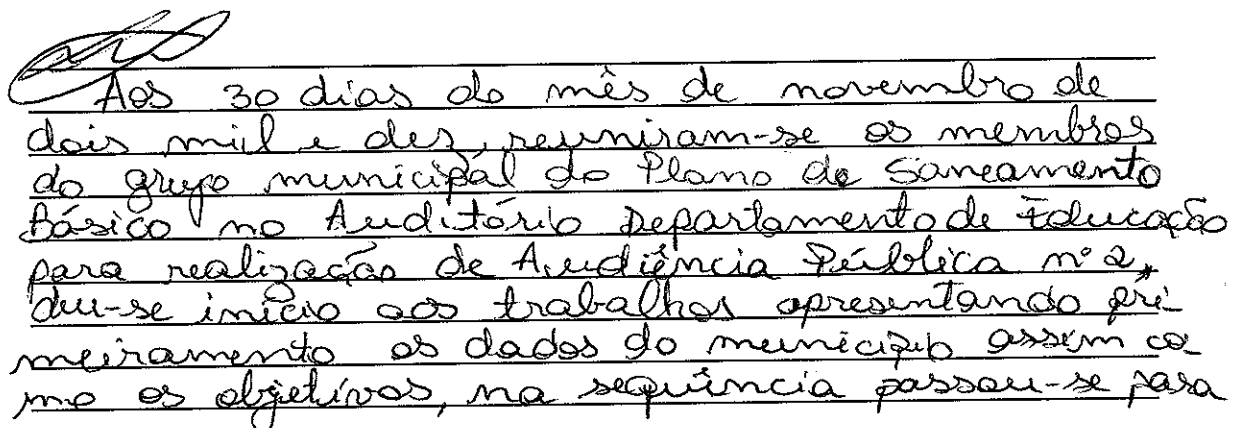 Aos 30 dias do mês de novembro de
dois mil e dez, reuniram-se os membros
do grupo municipal do Plano de Saneamento
Básico no Auditório Departamento de Educação
para realização de Audiência Pública nº 2,
deu-se início aos trabalhos apresentando pri
meiramento os dados do município assim co
mo os objetivos, na sequência passou-se para